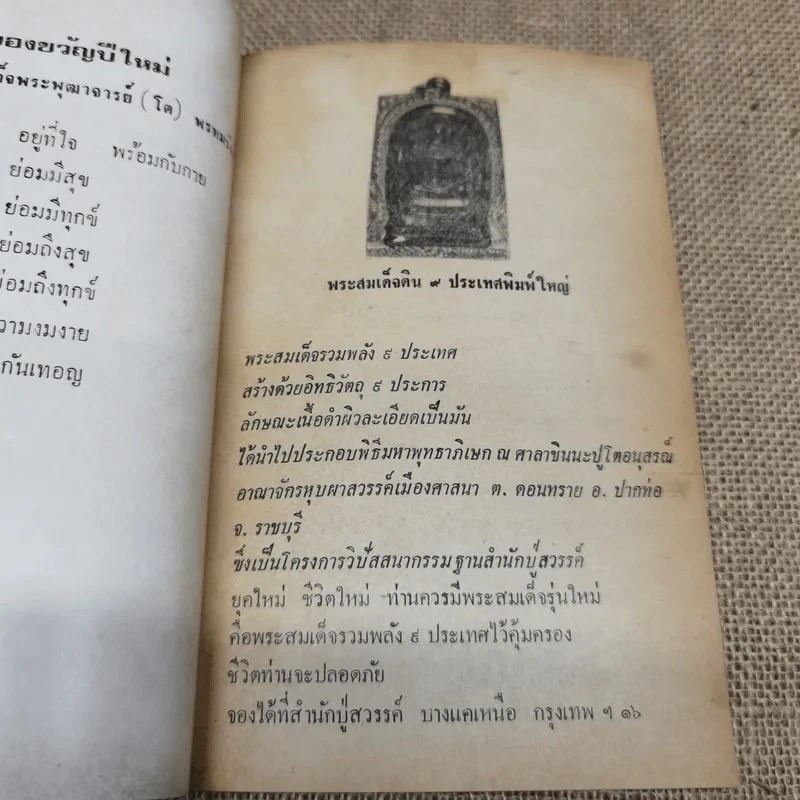 ของขวัญปีใหม่
พระพุฒาจารย์ (โต)
อยู่ที่ใจ พร้อมกับกาย
ย่อมมีสุข
ย่อมมีทุกข์
ย่อมถึงสุข
ย่อมถึงทุกข์
ความงมงาย
กันเทอญ
พระสมเด็จดิน ๙ ประเทศพิมพ์ใหญ่
พระสมเด็จรวมพลัง ๙ ประเทศ
สร้างด้วยอิทธิวัตถุ ๙ ประการ
ลักษณะเนื้อดำผิวละเอียดเป็นมัน
ได้นำไปประกอบพิธีมหาพุทธาภิเษก ณ ศาลาชินนะปูโตอนุสรณ์
อาณาจักรหุบผาสวรรค์เมืองศาสนา ต. ดอนทราย อ. ปากท่อ
จ. ราชบุรี
ซึ่งเป็นโครงการวิปัสสนากรรมฐานสำนักปู่สวรรค์
ยุคใหม่ ชีวิตใหม่ ท่านควรมีพระสมเด็จรุ่นใหม่
คือพระสมเด็จรวมพลัง ๙ ประเทศไว้คุ้มครอง
ชีวิตท่านจะปลอดภัย
จองได้ที่สำนักปู่สวรรค์ บางแคเหนือ กรุงเทพ ฯ ๑๖